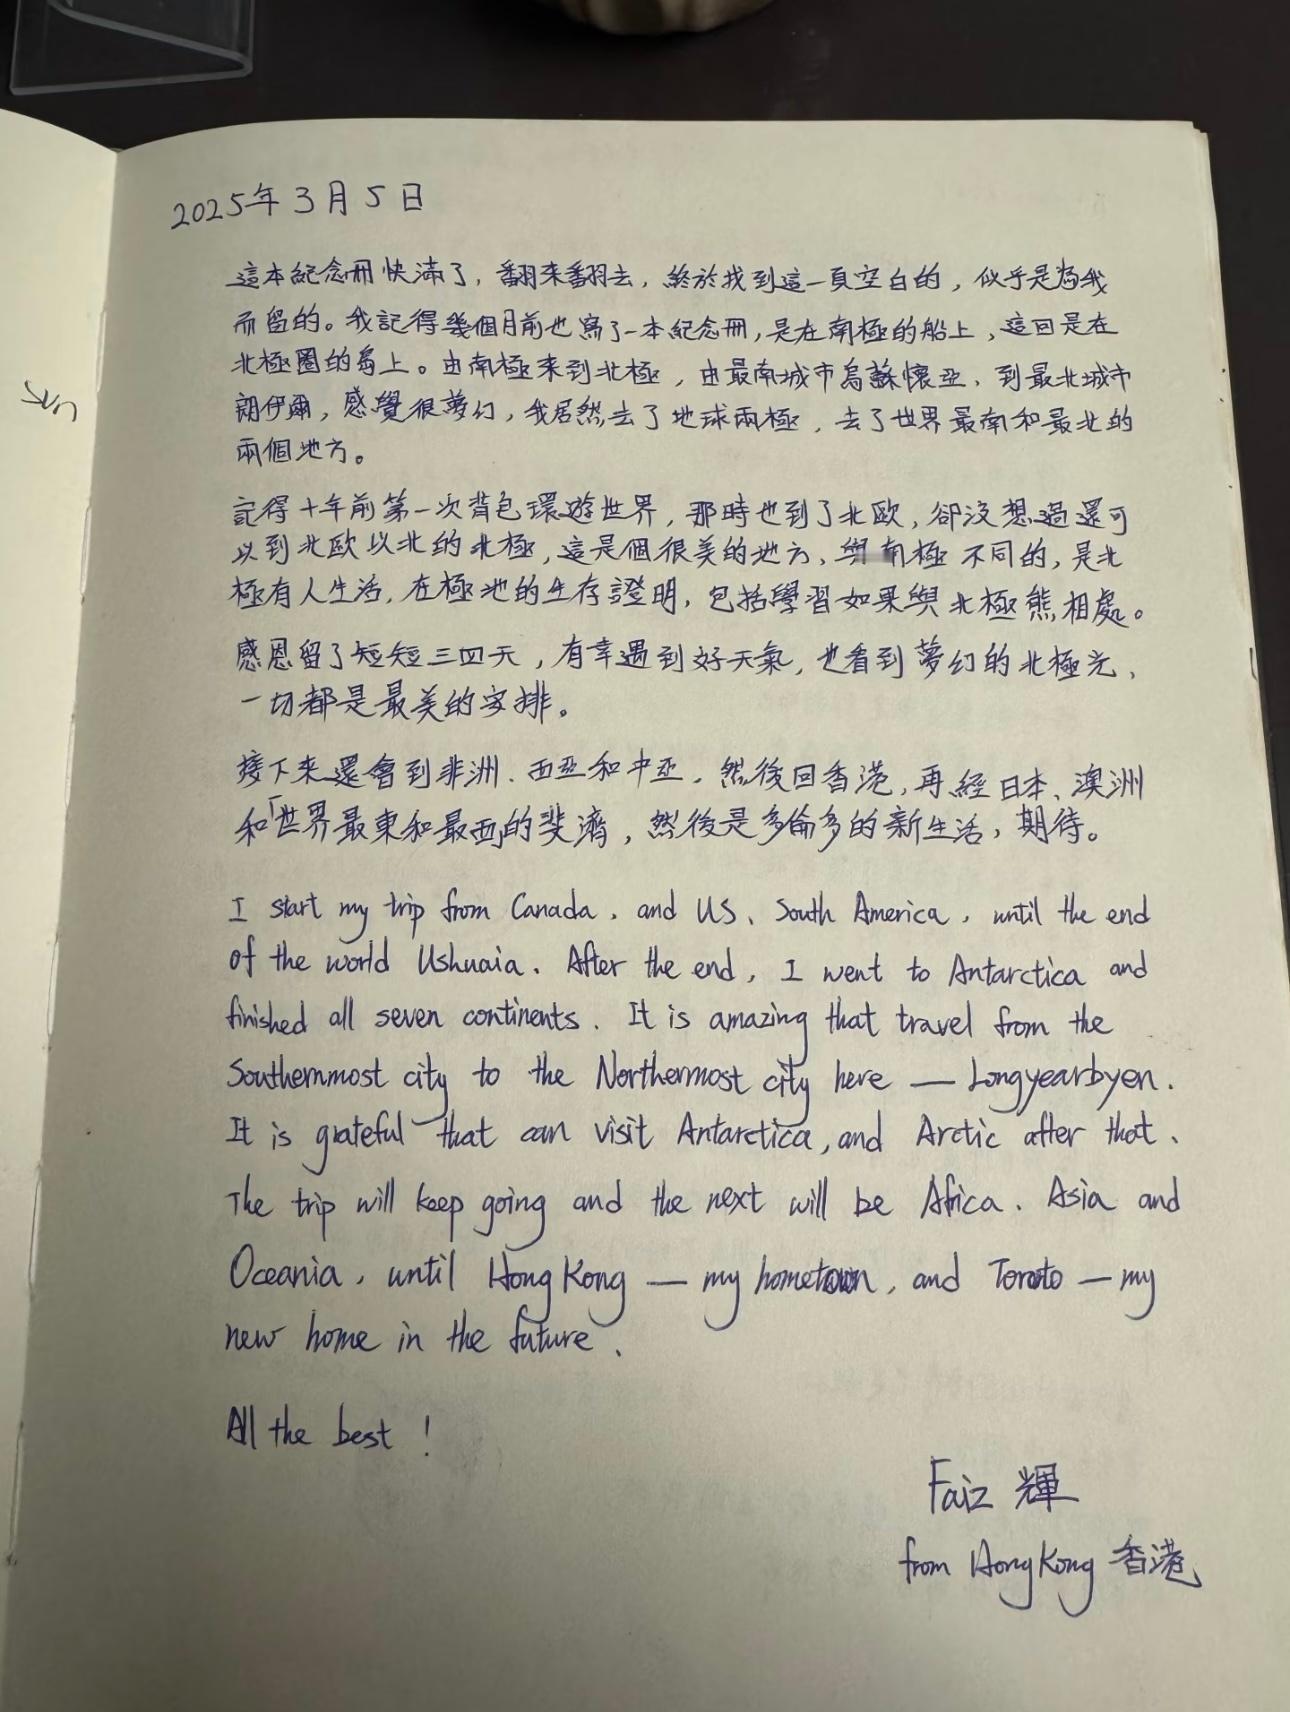 2025年3月5日
這本紀念冊快滿了，翻來翻去，終於找到這一頁空白的，似乎是為我
而留的。我記得幾個月前也寫了一本紀念冊，是在南極的船上，這回是在
北極圈的島上。由南極來到北極，由最南城市烏蘇懷亞、到最北城市
朗伊爾，感覺很夢幻，我居然去了地球兩極，去了世界最南和最北的
兩個地方。
記得十年前第一次背包環遊世界，那時也到了北歐，卻沒想過還可
以到北歐以北的北極，這是個很美的地方、與南極不同的，是北
極有人生活，在極地的生存證明，包括學習如果與北極熊相處。
感恩留了短短三四天，有幸遇到好天氣，也看到夢幻的北極光、
一切都是最美的安排。
接下來還會到非洲、西亞和中亞，然後回香港，再經日本、澳洲
和「世界最東和最西」的斐濟，然後是多倫多的新生活，期待。
I start my trip from Canada, and US, South America, until the end
of the world Ushuaia. After the end, I went to Antarctica and
finished all seven continents. It is amazing that travel from the
Southernmost city to the Northermost city here — Longyearbyen.
It is grateful that can visit Antarctica, and Arctic after that.
The trip will keep going and the next will be Africa. Asia and
Oceania, until Hong Kong — my hometown, and Toronto — my
new home in the future.
All the best !
Faiz 輝
from Hong Kong 香港